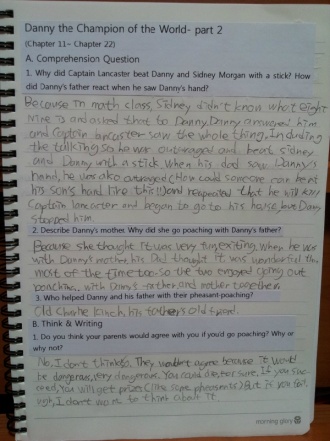 Danny the Champion of the World- part 2
(Chapter 11~ Chapter 22)
A. Comprehension Question
1. Why did Captain Lancaster beat Danny and Sidney Morgan with a stick? How
did Danny's father react when he saw Danny's hand?
Because in math class, Sidney didn't know what eight
Nine is and asked that to Danny. Danny answered him
and Captain Lancaster saw the whole thing, Including
the talking. So he was outraged and beat Sidney
and Danny with a stick. When his dad saw Danny's
hand, he was also outraged (How could someone can beat
his son's hand like this!) and repeated that he will kill
Captain Lancaster and began to go to his house, but Danny
stopped him.
2. Describe Danny's mother. Why did she go poaching with Danny's father?
Because she thought It was very fun, exiting. when he was
with Danny's mother, his Dad thought it was wonderful the
most of the time too. So the two enjoyed going out
poaching, with Danny's father and mother together.
3. Who helped Danny and his father with their pheasant-poaching?
Old Charlie Kinch, his father's old friend.
B. Think & Writing
1. Do you think your parents would agree with you if you'd go poaching? Why or
why not?
No, I don't think so. They wouldn't agree because it would
be dangerous, very dangerous. You could die, for sure. If you succ-
eed, You will get prize (like some pheasants) But if you fail,
ugh, I don't want to think about it.
morning glory